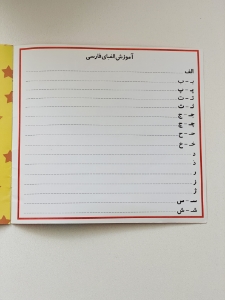 آموزش الفبای فارسی
الف
بـ - ب
پـ - پ
تـ - ت
ثـ - ث
جـ - ج
چـ - چ
حـ - ح
خـ - خ
د
ذ
ر
ز
ژ
سـ - س
شـ - ش